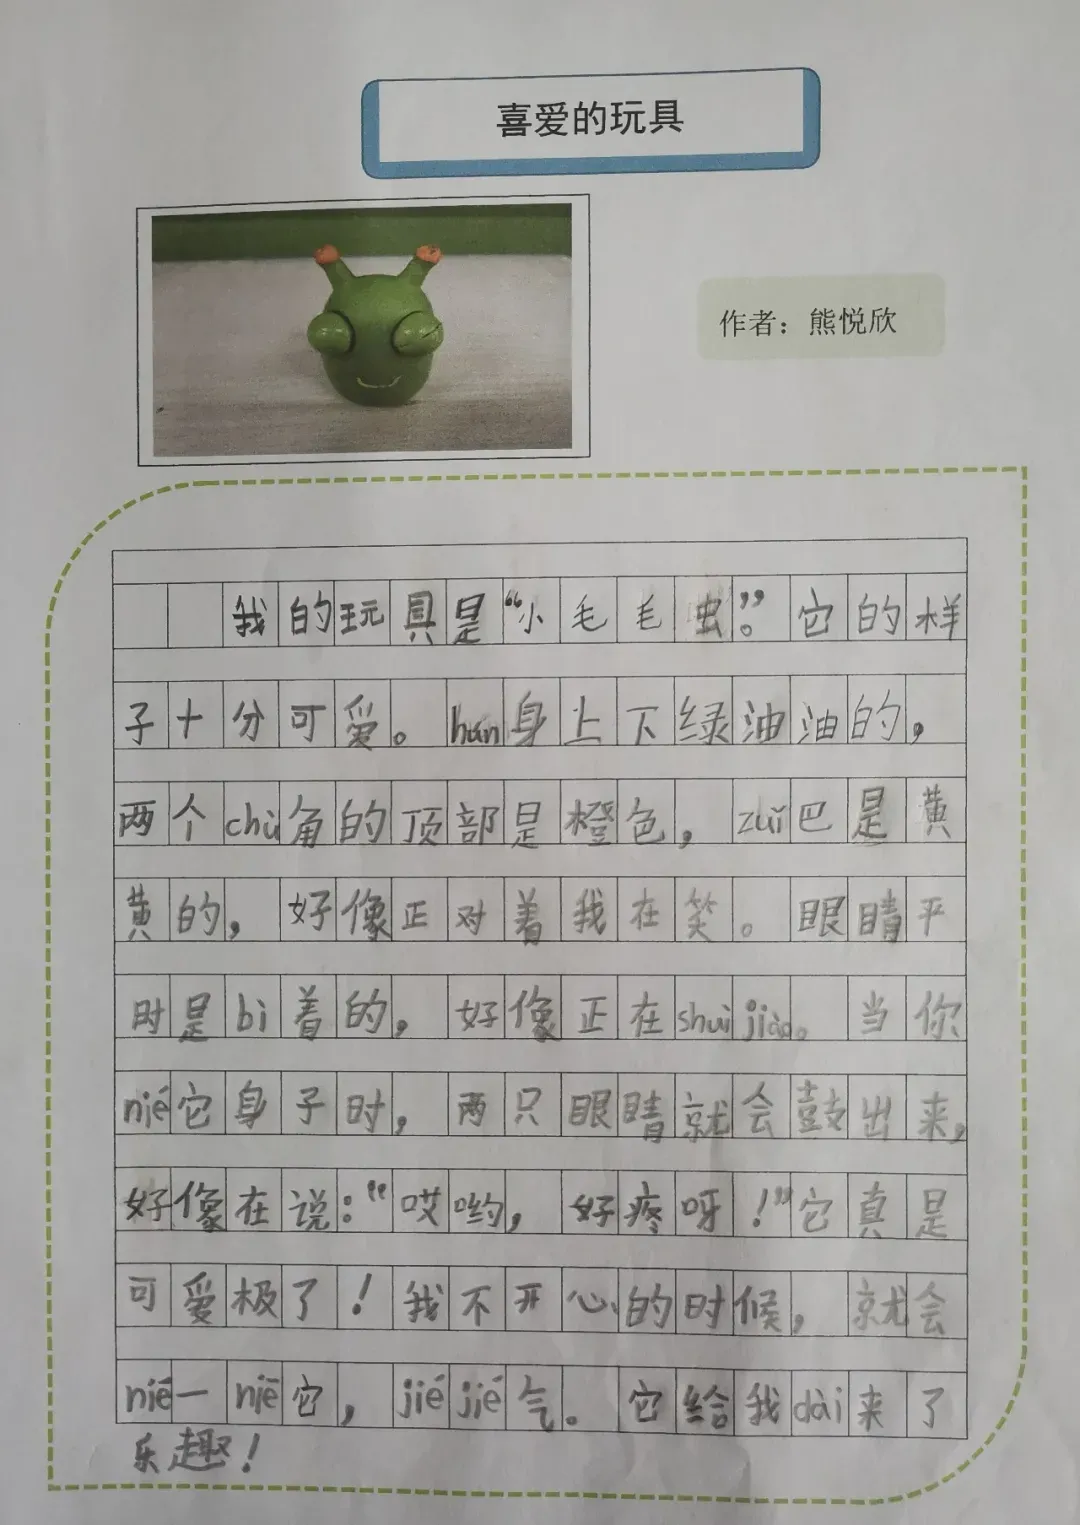 喜爱的玩具
作者：熊悦欣
我的玩具是“小毛毛虫”。它的样
子十分可爱。hún身上下绿油油的，
两个chù角的顶部是橙色，zuǐ巴是黄
黄的，好像正对着我在笑。眼睛平
时是bì着的，好像正在shuìjiào。当你
niē它身子时，两只眼睛就会鼓出来，
好像在说：“哎哟，好疼呀！”它真是
可爱极了！我不开心的时候，就会
niē一niē它，jiějiě气。它给我dài来了
乐趣！